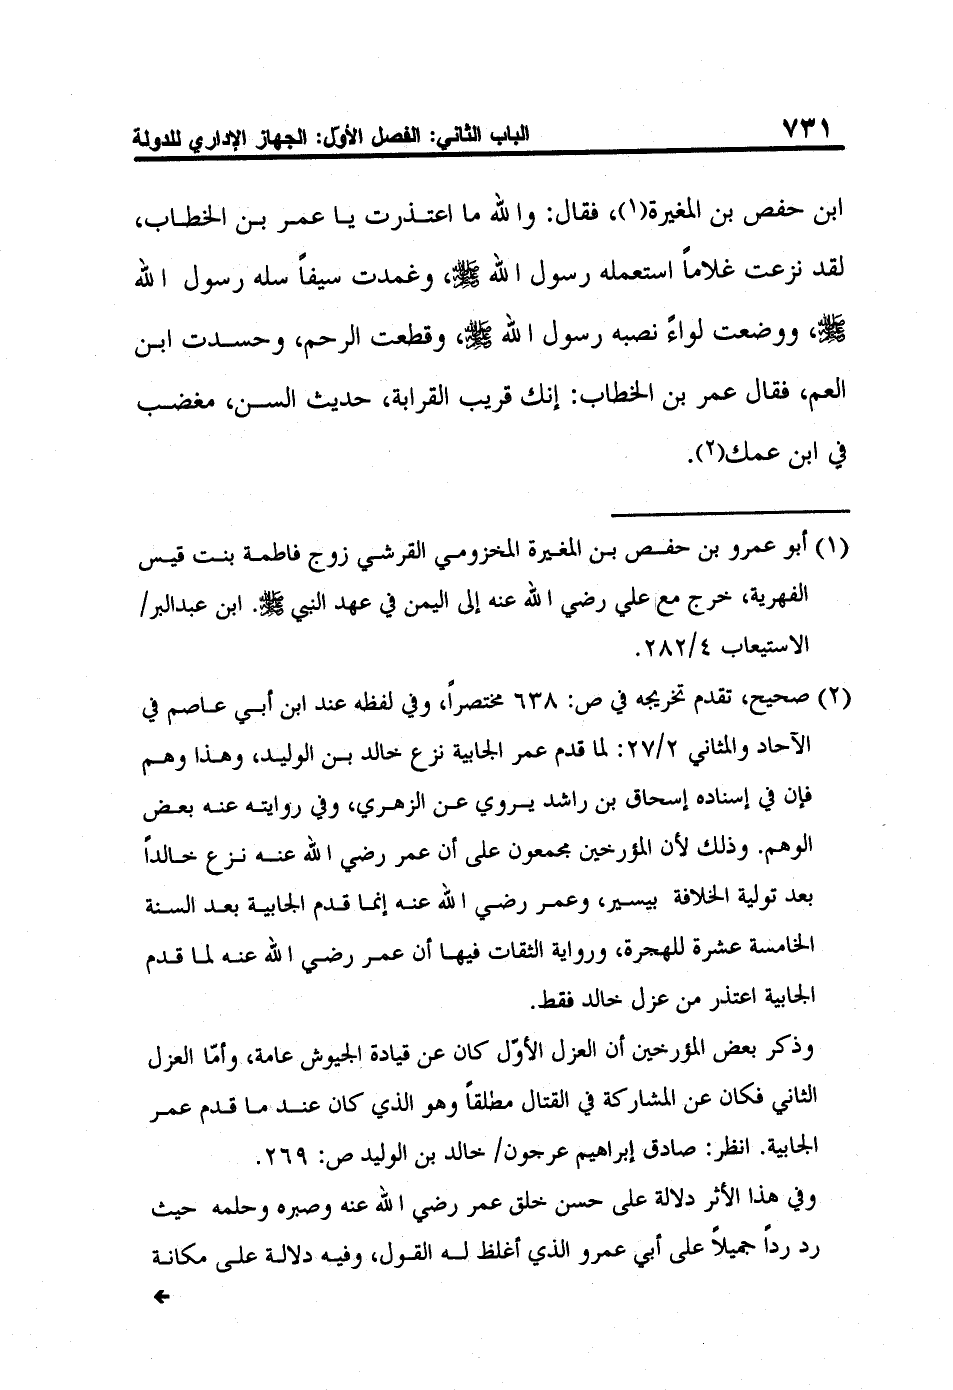 ٧٣١
الباب الثاني: الفصل الأول: الجهاز الإداري للدولة
ابن حفص بن المغيرة(١)، فقال: والله ما اعتذرت يا عمر بن الخطاب،
لقد نزعت غلاماً استعمله رسول الله ﷺ، وغمدت سيفاً سله رسول الله
ﷺ، ووضعت لواءً نصبه رسول الله ﷺ، وقطعت الرحم، وحسدت ابن
العم، فقال عمر بن الخطاب: إنك قريب القرابة، حديث السن، مغضب
في ابن عمك(٢).
(١) أبو عمرو بن حفص بن المغيرة المخزومي القرشي زوج فاطمة بنت قيس
الفهرية، خرج مع علي رضي الله عنه إلى اليمن في عهد النبي ﷺ. ابن عبدالبر/
الاستيعاب ٢٨٢/٤.
(٢) صحيح، تقدم تخريجه في ص: ٦٣٨ مختصراً، وفي لفظه عند ابن أبي عاصم في
الآحاد والمثاني ٢٧/٢: لما قدم عمر الجابية نزع خالد بن الوليد، وهذا وهم
فإن في إسناده إسحاق بن راشد يروي عن الزهري، وفي روايته عنه بعض
الوهم. وذلك لأن المؤرخين مجمعون على أن عمر رضي الله عنه نزع خالداً
بعد تولية الخلافة بيسير، وعمر رضي الله عنه إنما قدم الجابية بعد السنة
الخامسة عشرة للهجرة، ورواية الثقات فيها أن عمر رضي الله عنه لما قدم
الجابية اعتذر من عزل خالد فقط.
وذكر بعض المؤرخين أن العزل الأوّل كان عن قيادة الجيوش عامة، وأمّا العزل
الثاني فكان عن المشاركة في القتال مطلقاً وهو الذي كان عند ما قدم عمر
الجابية. انظر: صادق إبراهيم عرجون/ خالد بن الوليد ص: ٢٦٩.
وفي هذا الأثر دلالة على حسن خلق عمر رضي الله عنه وصبره وحلمه حيث
رد رداً جميلاً على أبي عمرو الذي أغلظ له القول، وفيه دلالة على مكانة
←